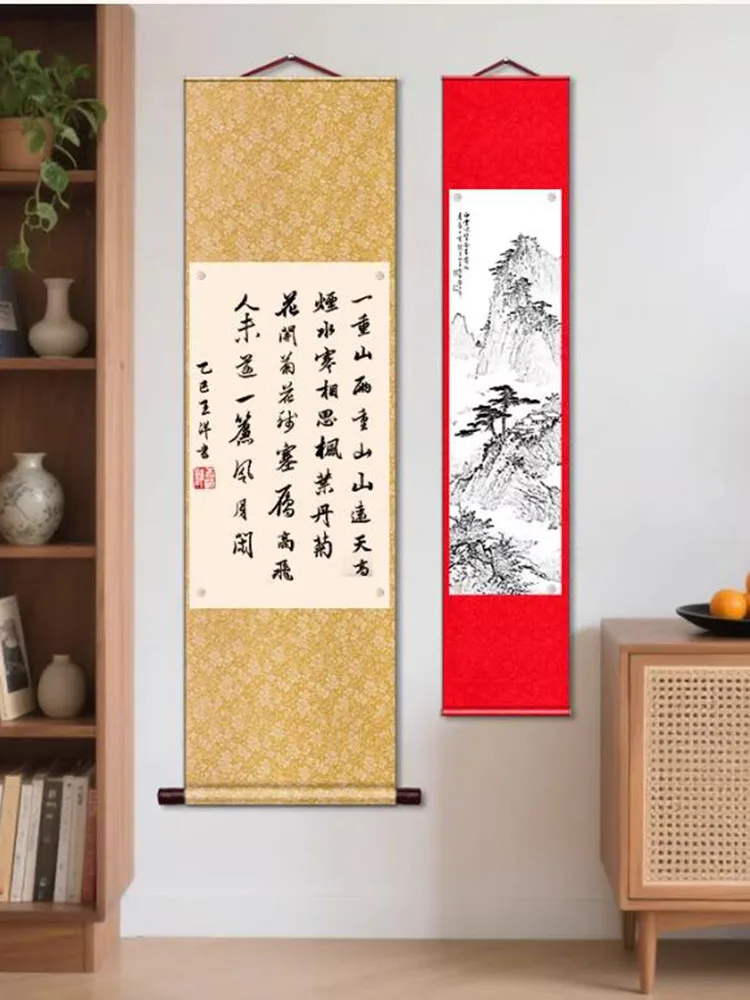 一重山兩重山山遠天高
煙水寒相思楓葉丹菊
花開菊花殘塞雁高飛
人未還一簾風月閑
乙巳王洋書